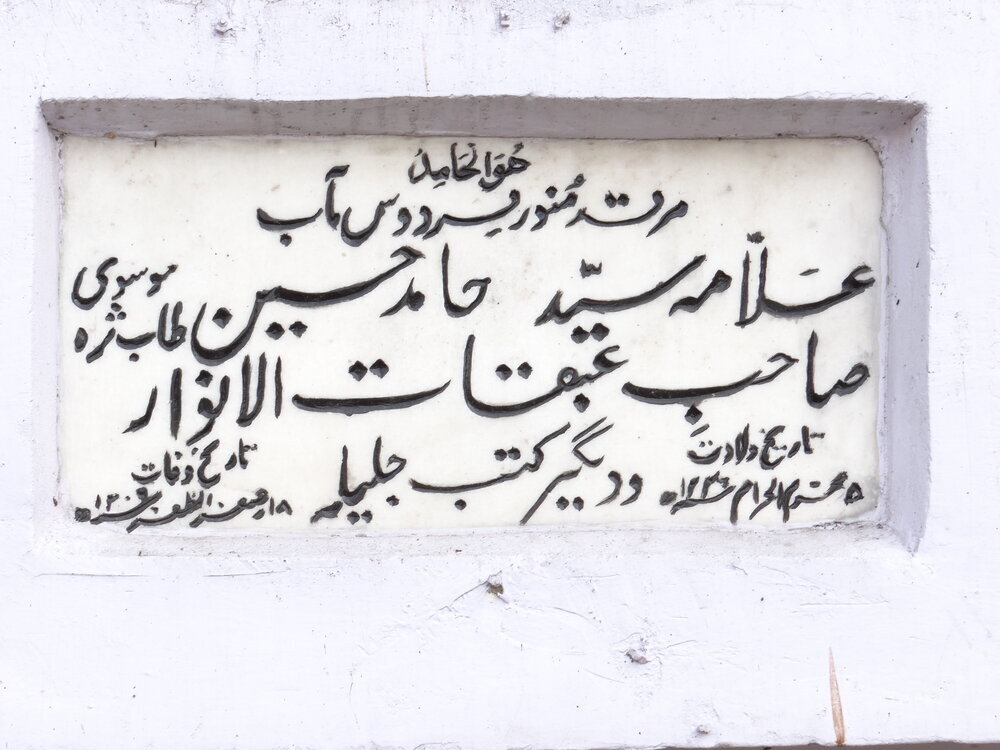 هُوَ الحَامِدُ
مرقد مُنور فردوس مآب
علّامہ سیّد حامد حسین موسوی طاب ثرہ
صاحبِ عبقات الانوار
ودیگر کتب جلیلہ
تاریخ ولادت
۵ محرم الحرام ۱۲۴۶ھ
تاریخ وفات
۱۸ صفر المظفر ۱۳۰۶ھ